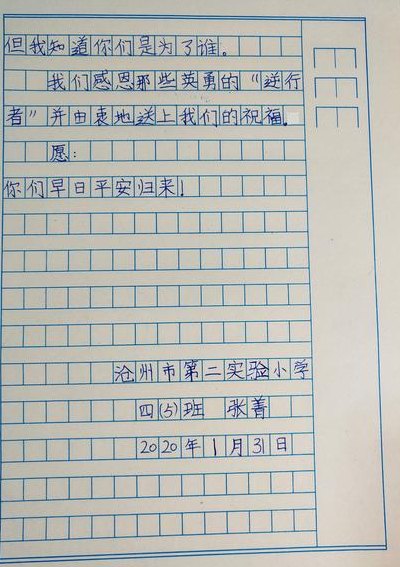 但我知道你们是为了谁。
我们感恩那些英勇的“逆行
者”并由衷地送上我们的祝福。
愿：
你们早日平安归来！
沧州市第二实验小学
四(5)班 张善
2020年1月31日